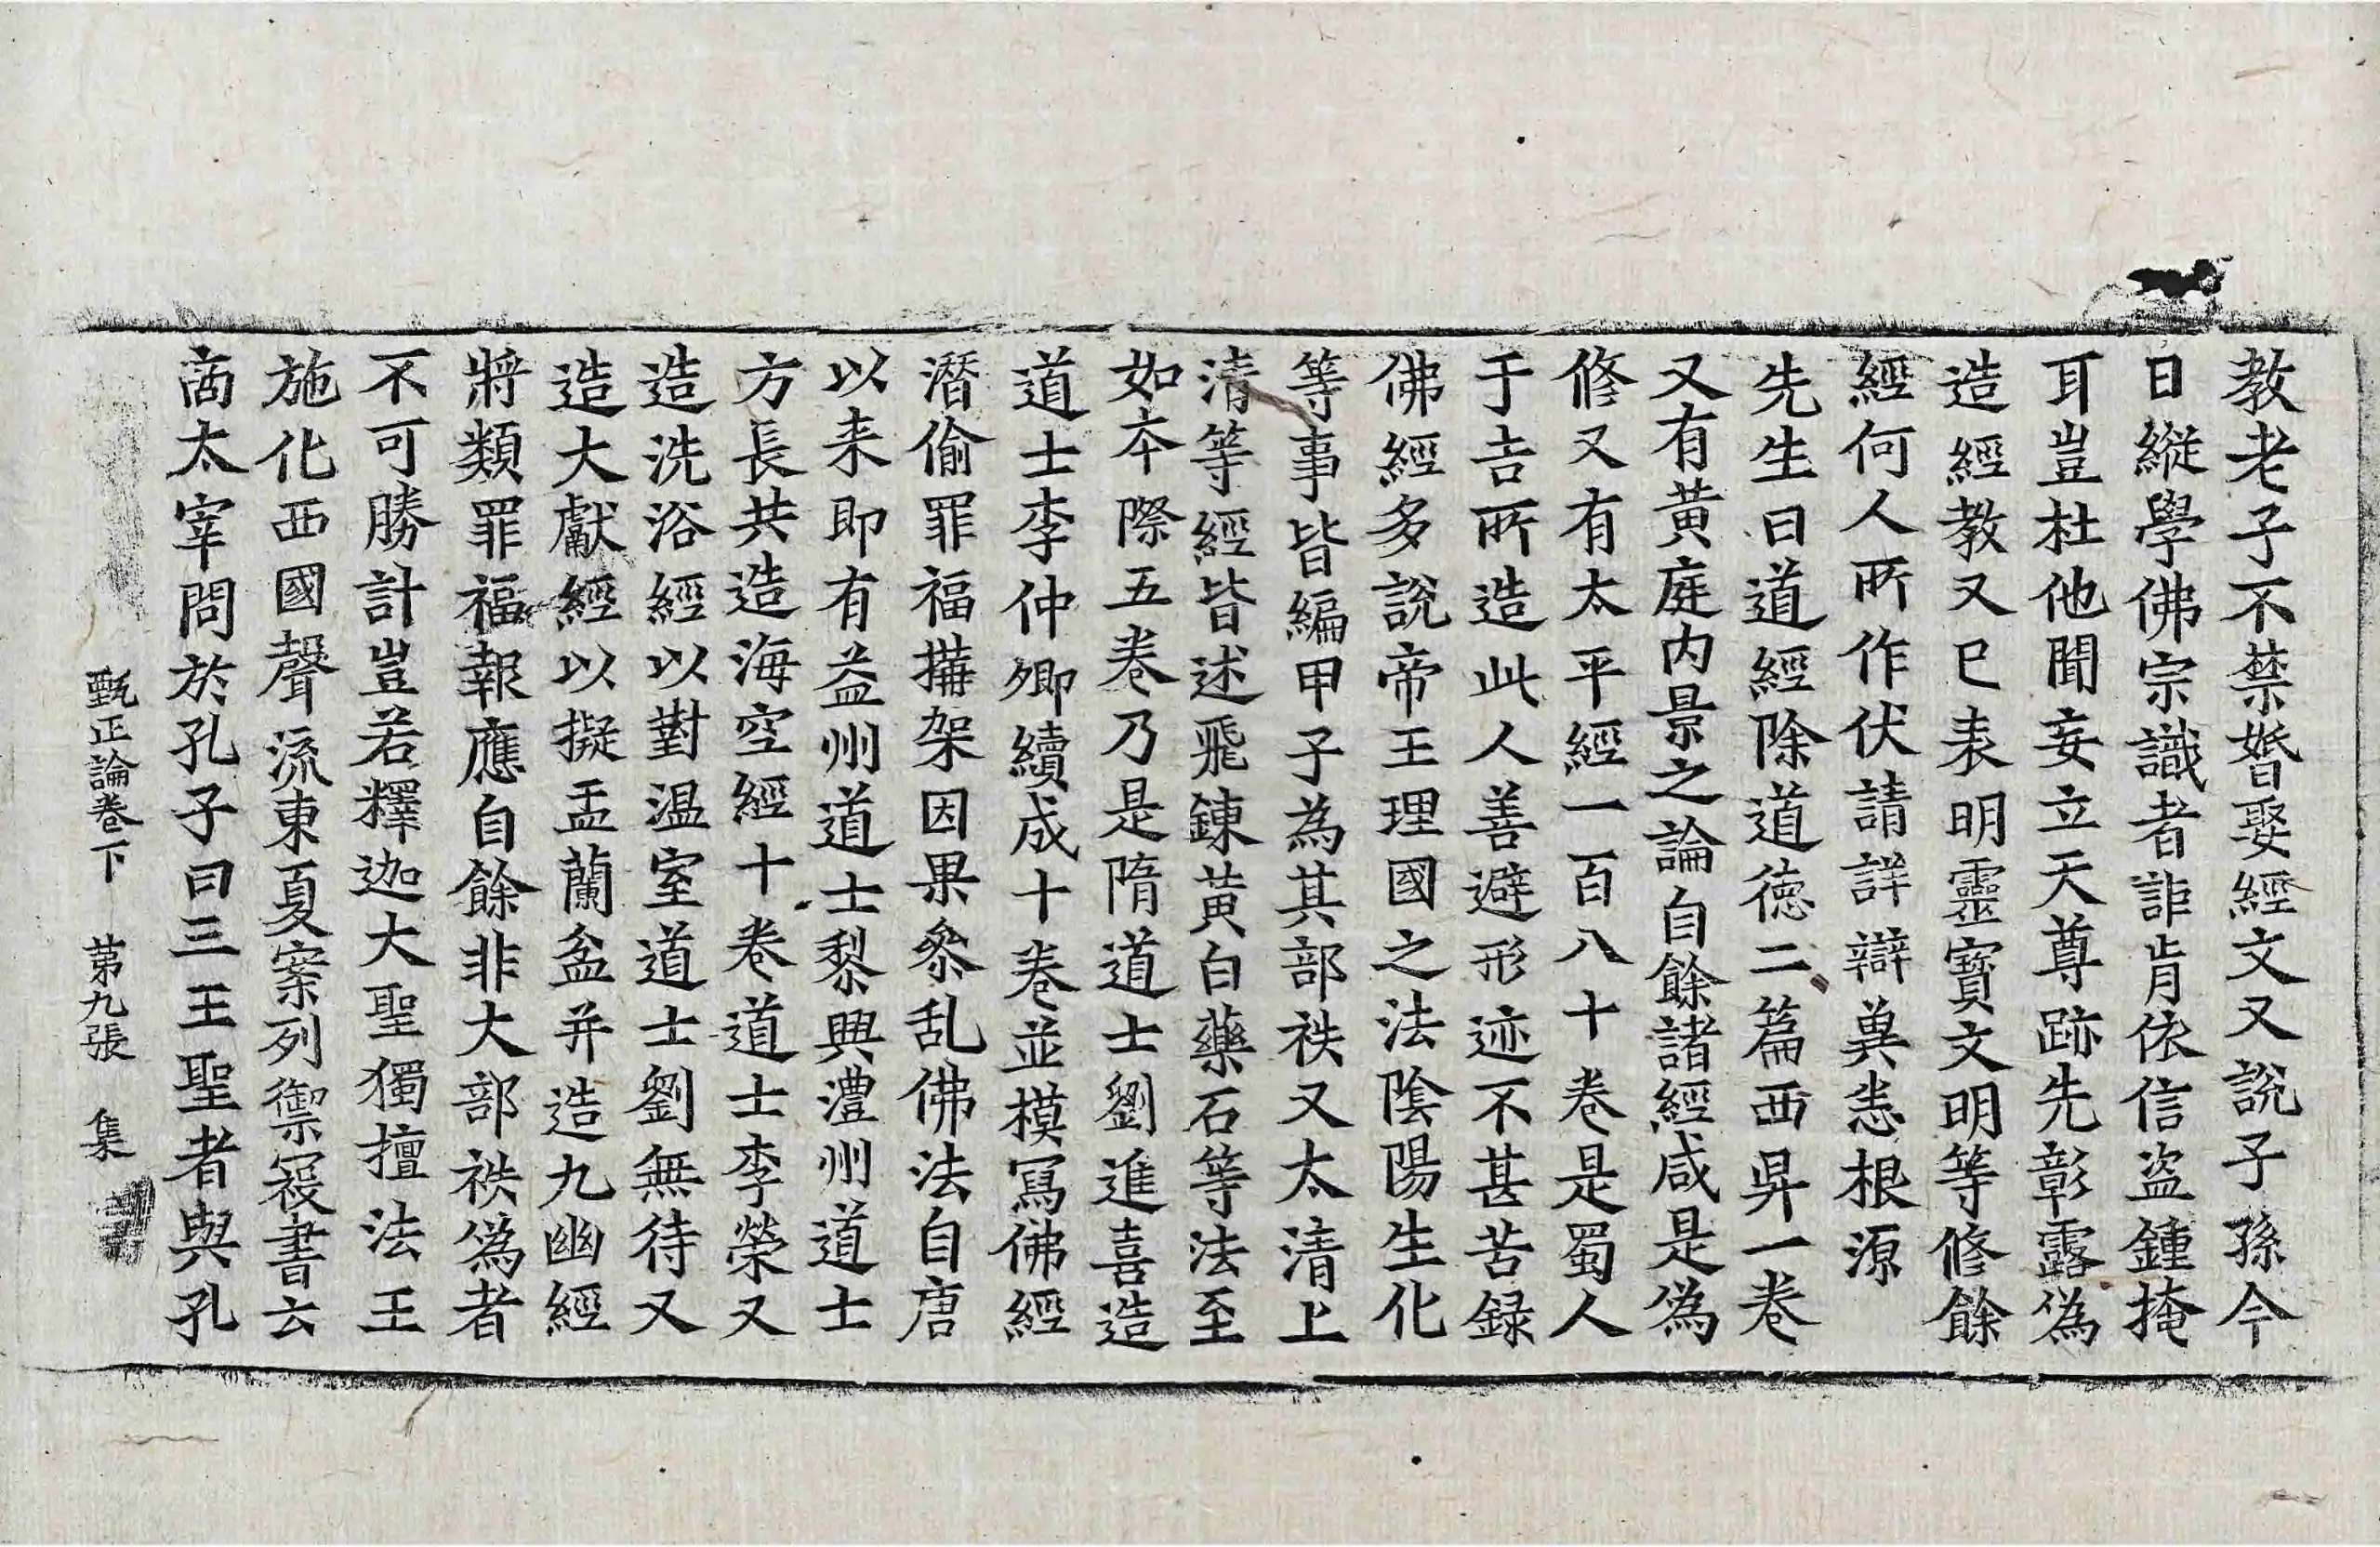 教老子不禁婚娶經文又說子孫今
日縱學佛宗識者詎肯依信盜鍾掩
耳豈杜他聞妄立天尊跡先彰露偽
造經教又已表明靈寶文明等修餘
經何人所作伏請詳辯兾悉根源
先生曰道經除道德二篇西昇一卷
又有黃庭内景之論自餘諸經咸是偽
修又有太平經一百八十卷是蜀人
于吉所造此人善避形迹不甚苦録
佛經多說帝王理國之法陰陽生化
等事皆編甲子為其部袟又太清上
清等經皆述飛鍊黃白藥石等法至
如本際五卷乃是隋道士劉進喜造
道士李仲卿續成十卷並模冩佛經
潛偷罪福搆架因果叅乱佛法自唐
以来即有益州道士黎興澧州道士
方長共造海空經十卷道士李榮又
造洗浴經以對温室道士劉無待又
造大獻經以擬盂蘭盆并造九幽經
將類罪福報應自餘非大部袟偽者
不可勝計豈若釋迦大聖獨擅法王
施化西國聲流東夏案列禦寇書云
商太宰問於孔子曰三王聖者與孔
甄正論卷下　第九張　集